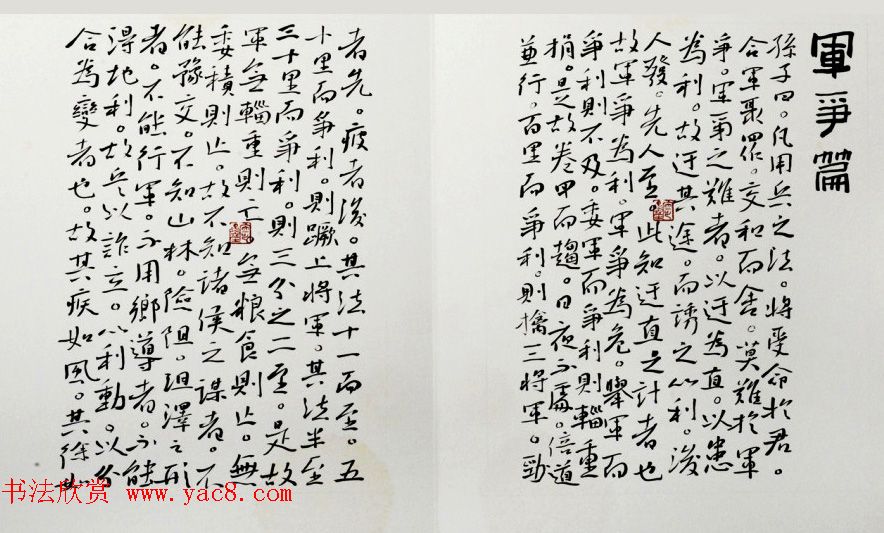 軍爭篇
孫子曰。凡用兵之法。將受命於君。
合軍聚眾。交和而舍。莫難於軍
爭。軍爭之難者。以迂為直。以患
為利。故迂其途。而誘之以利。後
人發。先人至。此知迂直之計者也
故軍爭為利。軍爭為危。舉軍而
爭利則不及。委軍而爭利則輜重
捐。是故卷甲而趨。日夜不處。倍道
並行。百里而爭利。則擒三將軍。勁
者先。疲者後。其法十一而至。五
十里而爭利。則蹶上將軍。其法半至
三十里而爭利。則三分之二至。是故
軍無輜重則亡。無糧食則亡。無
委積則亡。故不知諸侯之謀者。不
能豫交。不知山林。險阻。沮澤之形
者。不能行軍。不用鄉導者。不能
得地利。故兵以詐立。以利動。以分
合為變者也。故其疾如風。其徐如
书法欣赏 www.yac8.com